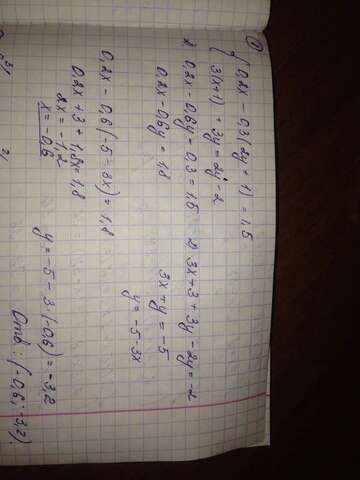 1) { 0,2x - 0,3(2y + 1) = 1,5
3(x+1) + 3y = 2y - 2
1. 0,2x - 0,6y - 0,3 = 1,5
0,2x - 0,6y = 1,8
2. 3x + 3 + 3y - 2y = -2
3x + y = -5
y = -5 - 3x
0,2x - 0,6(-5 - 3x) = 1,8
0,2x + 3 + 1,8x = 1,8
2x = -1,2
x = -0,6
y = -5 - 3·(-0,6) = -3,2
Отв: (-0,6; -3,2).